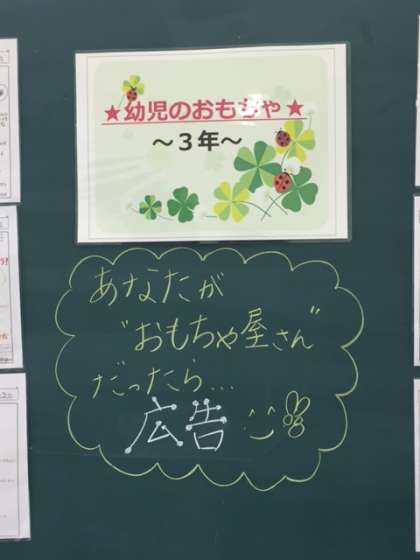 ★幼児のおもちゃ★
～3年～
あなたが
"おもちゃ屋さん"
だったら...
広告